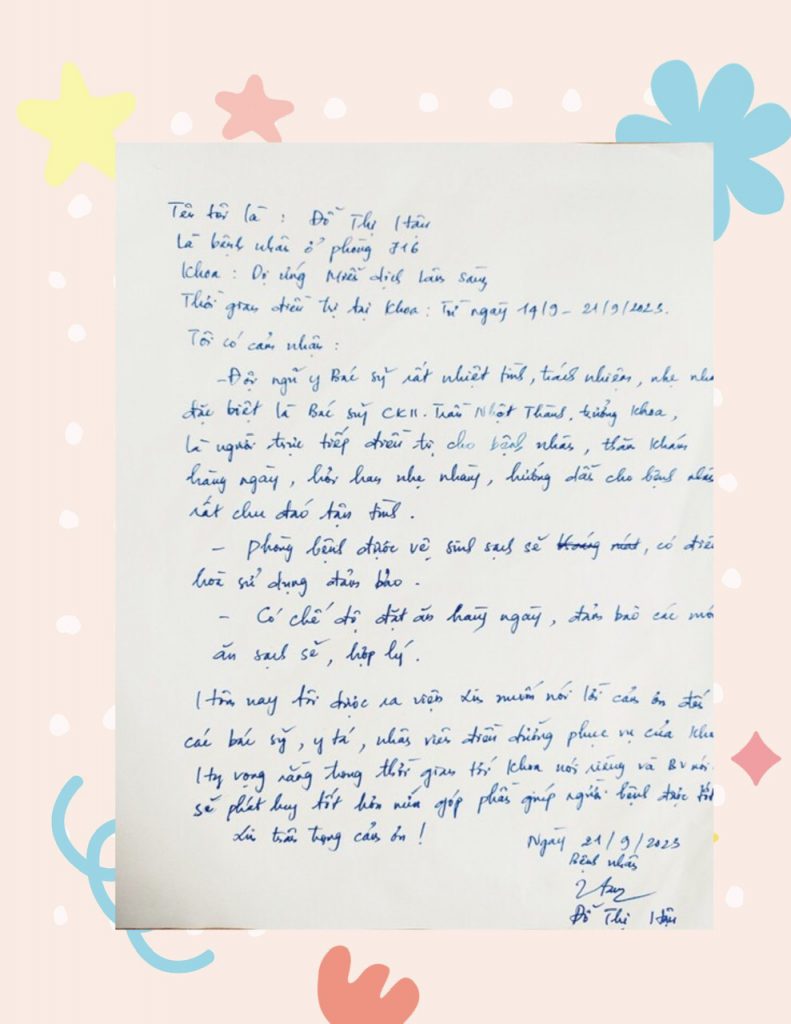 Tên tôi là : Đỗ Thị Hậu
Là bệnh nhân ở phòng 716
Khoa : Dị ứng Miễn dịch lâm sàng
Thời gian điều trị tại Khoa : Từ ngày 14/9 - 21/9/2023.
Tôi có cảm nhận :
- Đội ngũ y Bác sỹ rất nhiệt tình, trách nhiệm, nhẹ
đặc biệt là Bác sỹ CKII. Trần Nhật Thăng, trưởng khoa,
là người trực tiếp điều trị cho bệnh nhân, thăm khám
hàng ngày, hỏi han nhẹ nhàng, hướng dẫn cho bệnh nhân
rất chu đáo tận tình.
- Phòng bệnh được vệ sinh sạch sẽ, có điều
hoà sử dụng đảm bảo.
- Có chế độ đặt ăn hàng ngày, đảm bảo các
ăn sạch sẽ, hợp lý.
Hôm nay tôi được ra viện xin muốn nói lời cảm ơn
các bác sỹ, y tá, nhân viên điều dưỡng phục vụ của
Hy vọng rằng trong thời gian tới Khoa nói riêng và BV nói
sẽ phát huy tốt hơn nữa góp phần giúp người bệnh được
Xin trân trọng cảm ơn !
Ngày 21/9/2023
Bệnh nhân
Đỗ Thị Hậu